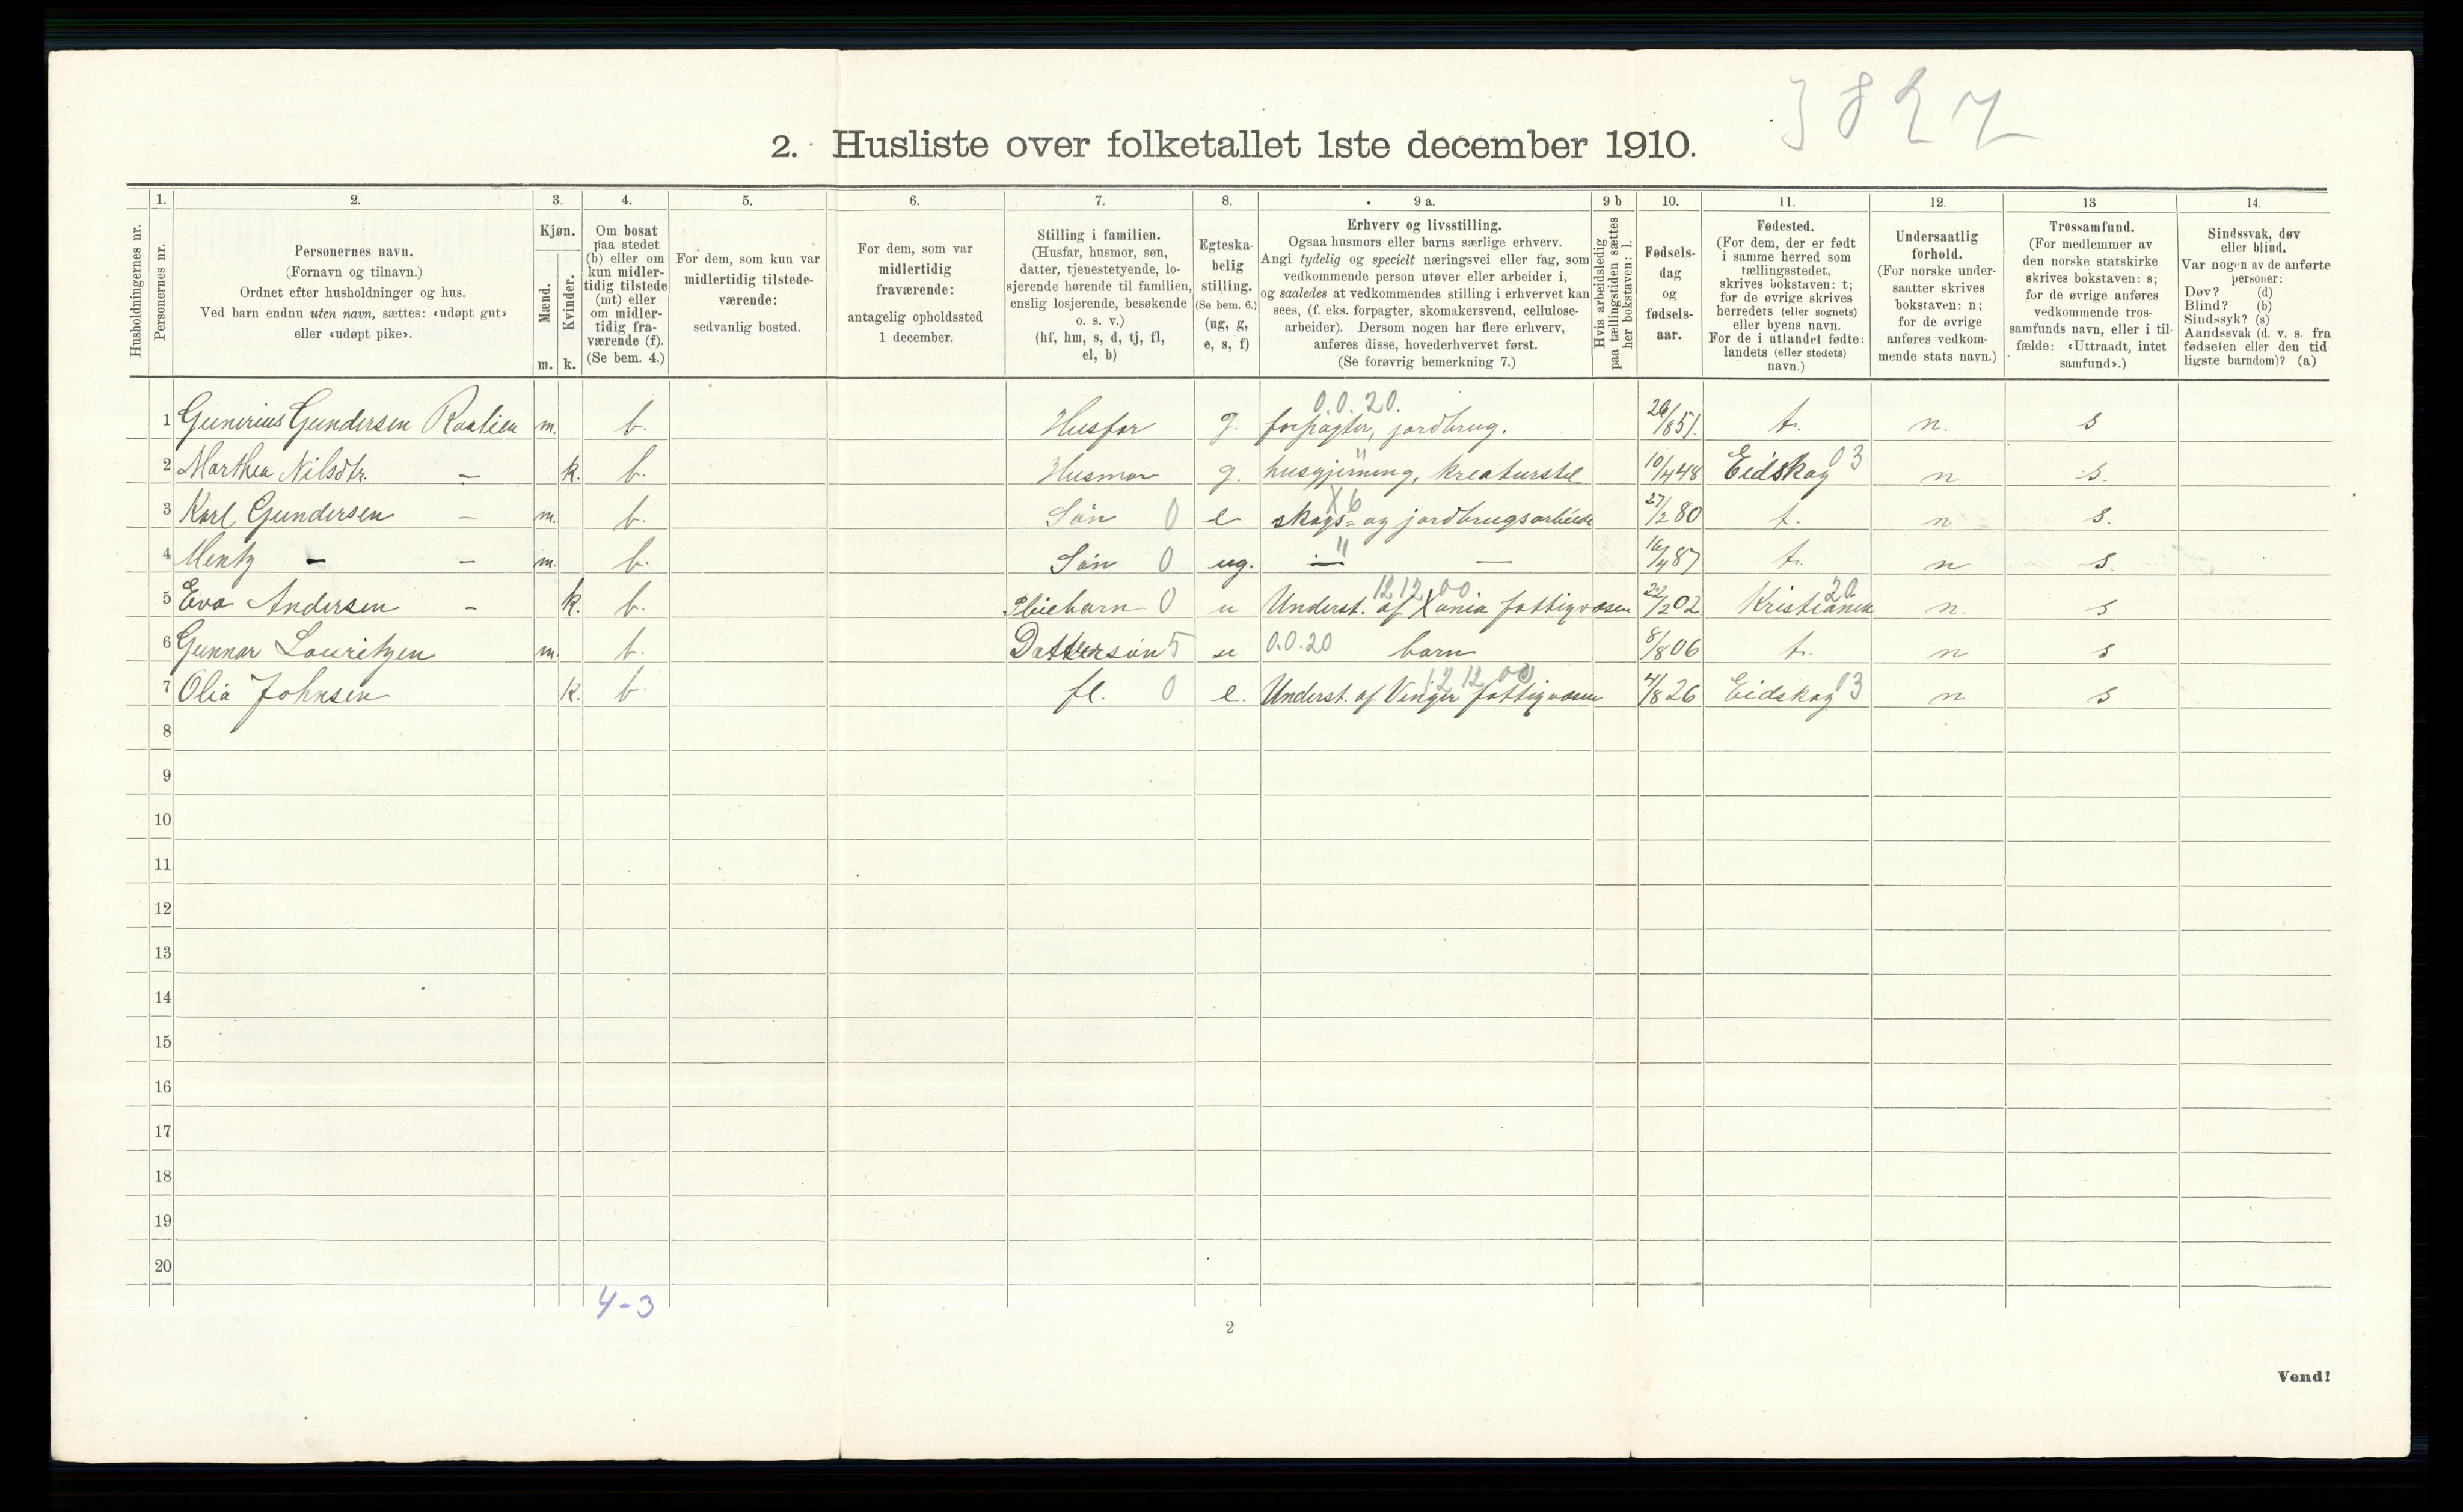 3827
2. Husliste over folketallet 1ste december 1910.
Husholdningernes nr.
1. Personernes nr.
2. Personernes navn.
(Fornavn og tilnavn.)
Ordnet efter husholdninger og hus.
Ved barn endnu uten navn, sættes: «udøpt gut»
eller «udøpt pike».
3. Kjøn.
Mænd. m.
Kvinder. k.
4. Om bosat
paa stedet
(b) eller om
kun midler-
tidig tilstede
(mt) eller
om midler-
tidig fra-
værende (f).
(Se bem. 4.)
5. For dem, som kun var
midlertidig tilstede-
værende:
sedvanlig bosted.
6. For dem, som var
midlertidig
fraværende:
antagelig opholdssted
1 december.
7. Stilling i familien.
(Husfar, husmor, søn,
datter, tjenestetyende, lo-
sjerende hørende til familien,
enslig losjerende, besøkende
o. s. v.)
(hf, hm, s, d, tj, fl,
el, b)
8. Egteska-
belig
stilling.
(Se bem. 6.)
(ug, g,
e, s, f)
9 a. Erhverv og livsstilling.
Ogsaa husmors eller barns særlige erhverv.
Angi tydelig og specielt næringsvei eller fag, som
vedkommende person utøver eller arbeider i,
og saaledes at vedkommendes stilling i erhvervet kan
sees, (f. eks. forpagter, skomakersvend, cellulose-
arbeider). Dersom nogen har flere erhverv,
anføres disse, hovederhvervet først.
(Se forøvrig bemerkning 7.)
9 b Hvis arbeidsledig
paa tællingstiden sættes
her bokstaven: l.
10. Fødsels-
dag
og
fødsels-
aar.
11. Fødested.
(For dem, der er født
i samme herred som
tællingsstedet,
skrives bokstaven: t;
for de øvrige skrives
herredets (eller sognets)
eller byens navn.
For de i utlandet fødte:
landets (eller stedets)
navn.)
12. Undersaatlig
forhold.
(For norske under-
saatter skrives
bokstaven: n;
for de øvrige
anføres vedkom-
mende stats navn.)
13 Trossamfund.
(For medlemmer av
den norske statskirke
skrives bokstaven: s;
for de øvrige anføres
vedkommende tros-
samfunds navn, eller i til-
fælde: «Uttraadt, intet
samfund».)
14. Sindssvak, døv
eller blind.
Var nogen av de anførte
personer:
Døv? (d)
Blind? (b)
Sindssyk? (s)
Aandssvak (d. v. s. fra
fødselen eller den tid
ligste barndom)? (a)
0.0.20.
1 Gunerius Gundersen Raalien m. b. Husfar g. forpagter, jordbrug. 26/8 51. t. n. s
2 Marthea Nilsdtr. — k. b. Husmor g. husgjerning, kreaturstel " 10/4 48 Eidskog 03 n s.
3 Karl Gundersen — m. b. Søn 0 e skogs- og jordbrugsarbeide X6 27/2 80 t. n s.
4 Mentz — — m. b. Søn 0 ug. — " — 16/4 87 t. n s.
5 Eva Andersen — k. b. Pleiebarn 0 u Underst. af Xania fattigvæsen 12 12 00 22/2 02 Kristiania 20 n. s
6 Gunnar Louritzen m. b. Dattersøn 5 u 0.0.20 barn 8/8 06 t. n s
7 Olia Johnsen k. b. fl. 0 e. Underst. af Vinger fattigvæsen 12 12 00 4/8 26 Eidskog 03 n s
8
9
10
11
12
13
14
15
16
17
18
19
20
4-3
2
Vend!